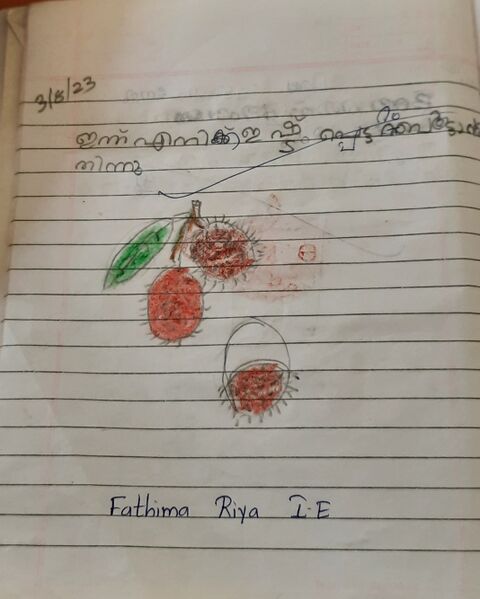 3/8/23
ഇന്ന് എനിക്ക് ഇഷ്ട്ടപ്പെട്ട റംബൂട്ടാൻ
തിന്നു
Fathima Riya I-E